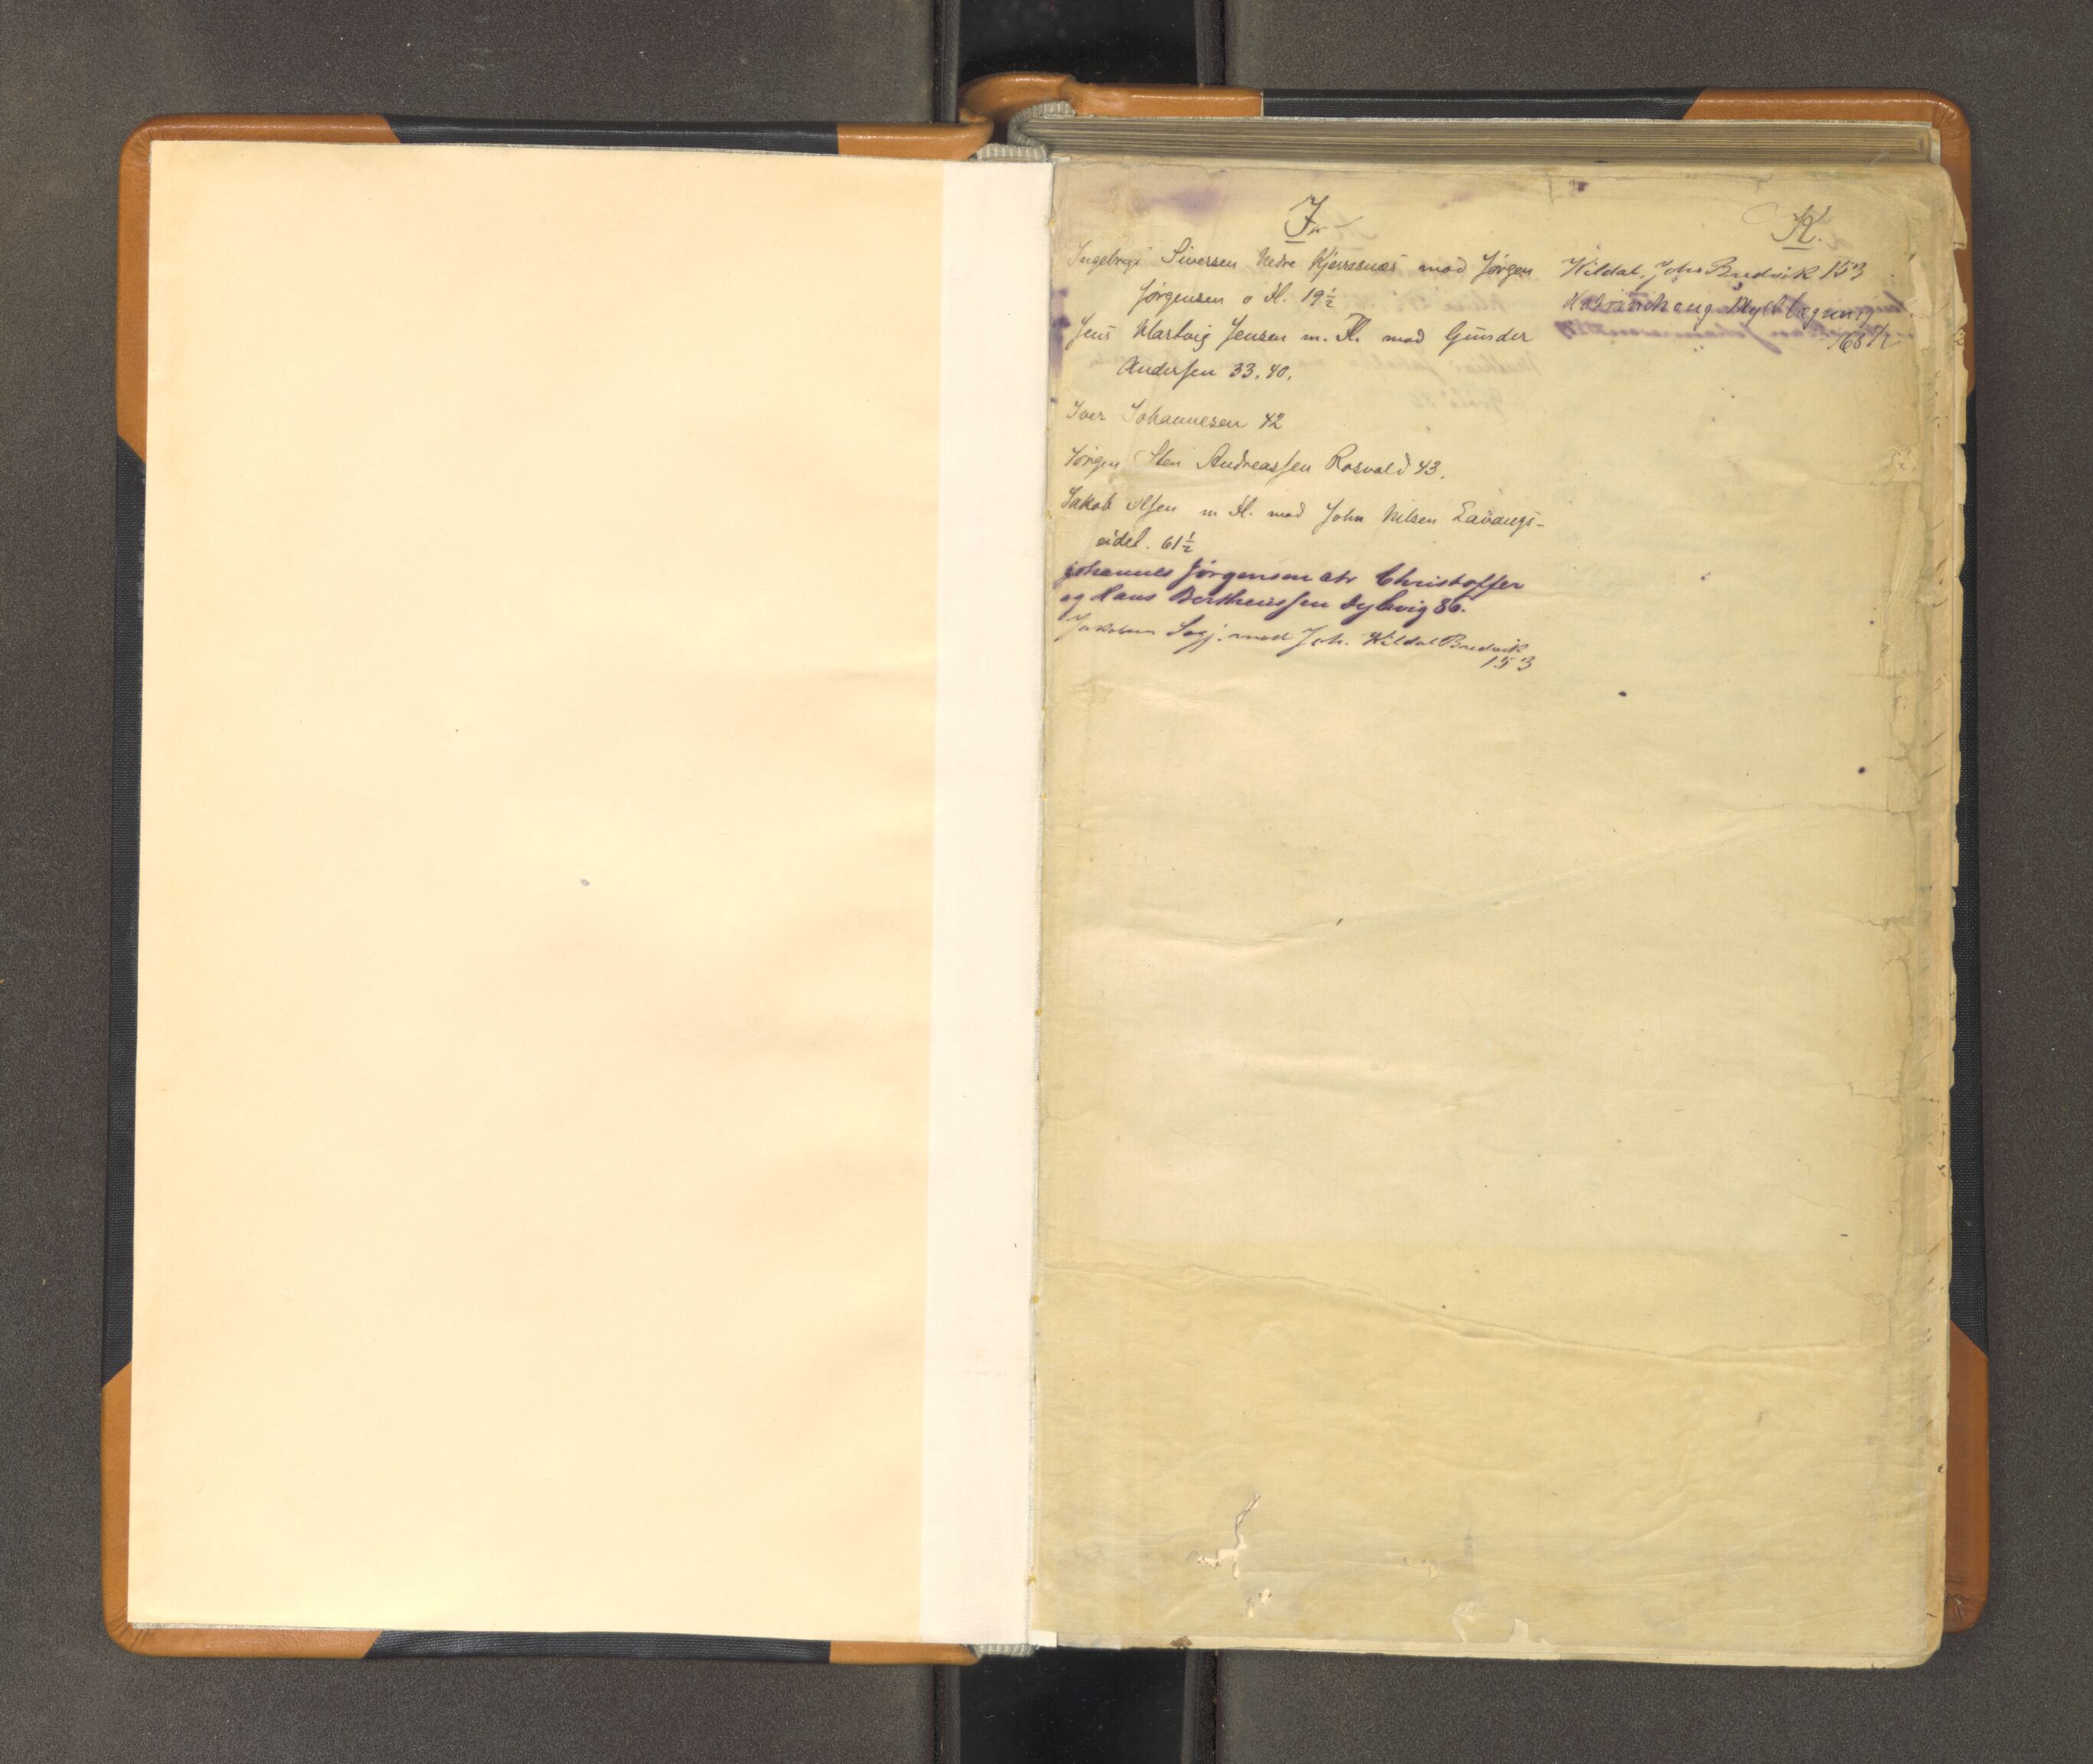 J.
Ingebrigt Siversen Nedre Kjerresnæs mod Jørgen
Jørgensen o Fl. 19½
Jens Hartvig Jensen m. Fl. mod Gunder
Andersen 33. 40.
Iver Johannesen 42
Jørgen Sten Andreassen Rosvald 43.
Jakob Olsen m Fl. mod John Nilsen Lavangs-
eidet. 61½
Johannes Jørgensen ctr Christoffer
og Hans Bertheussen Dybvig 86.
Jakobsen Sogj. mod Joh. Kildal Bredvik
153
K.
Kildal, Johs Bredvik 153
168½